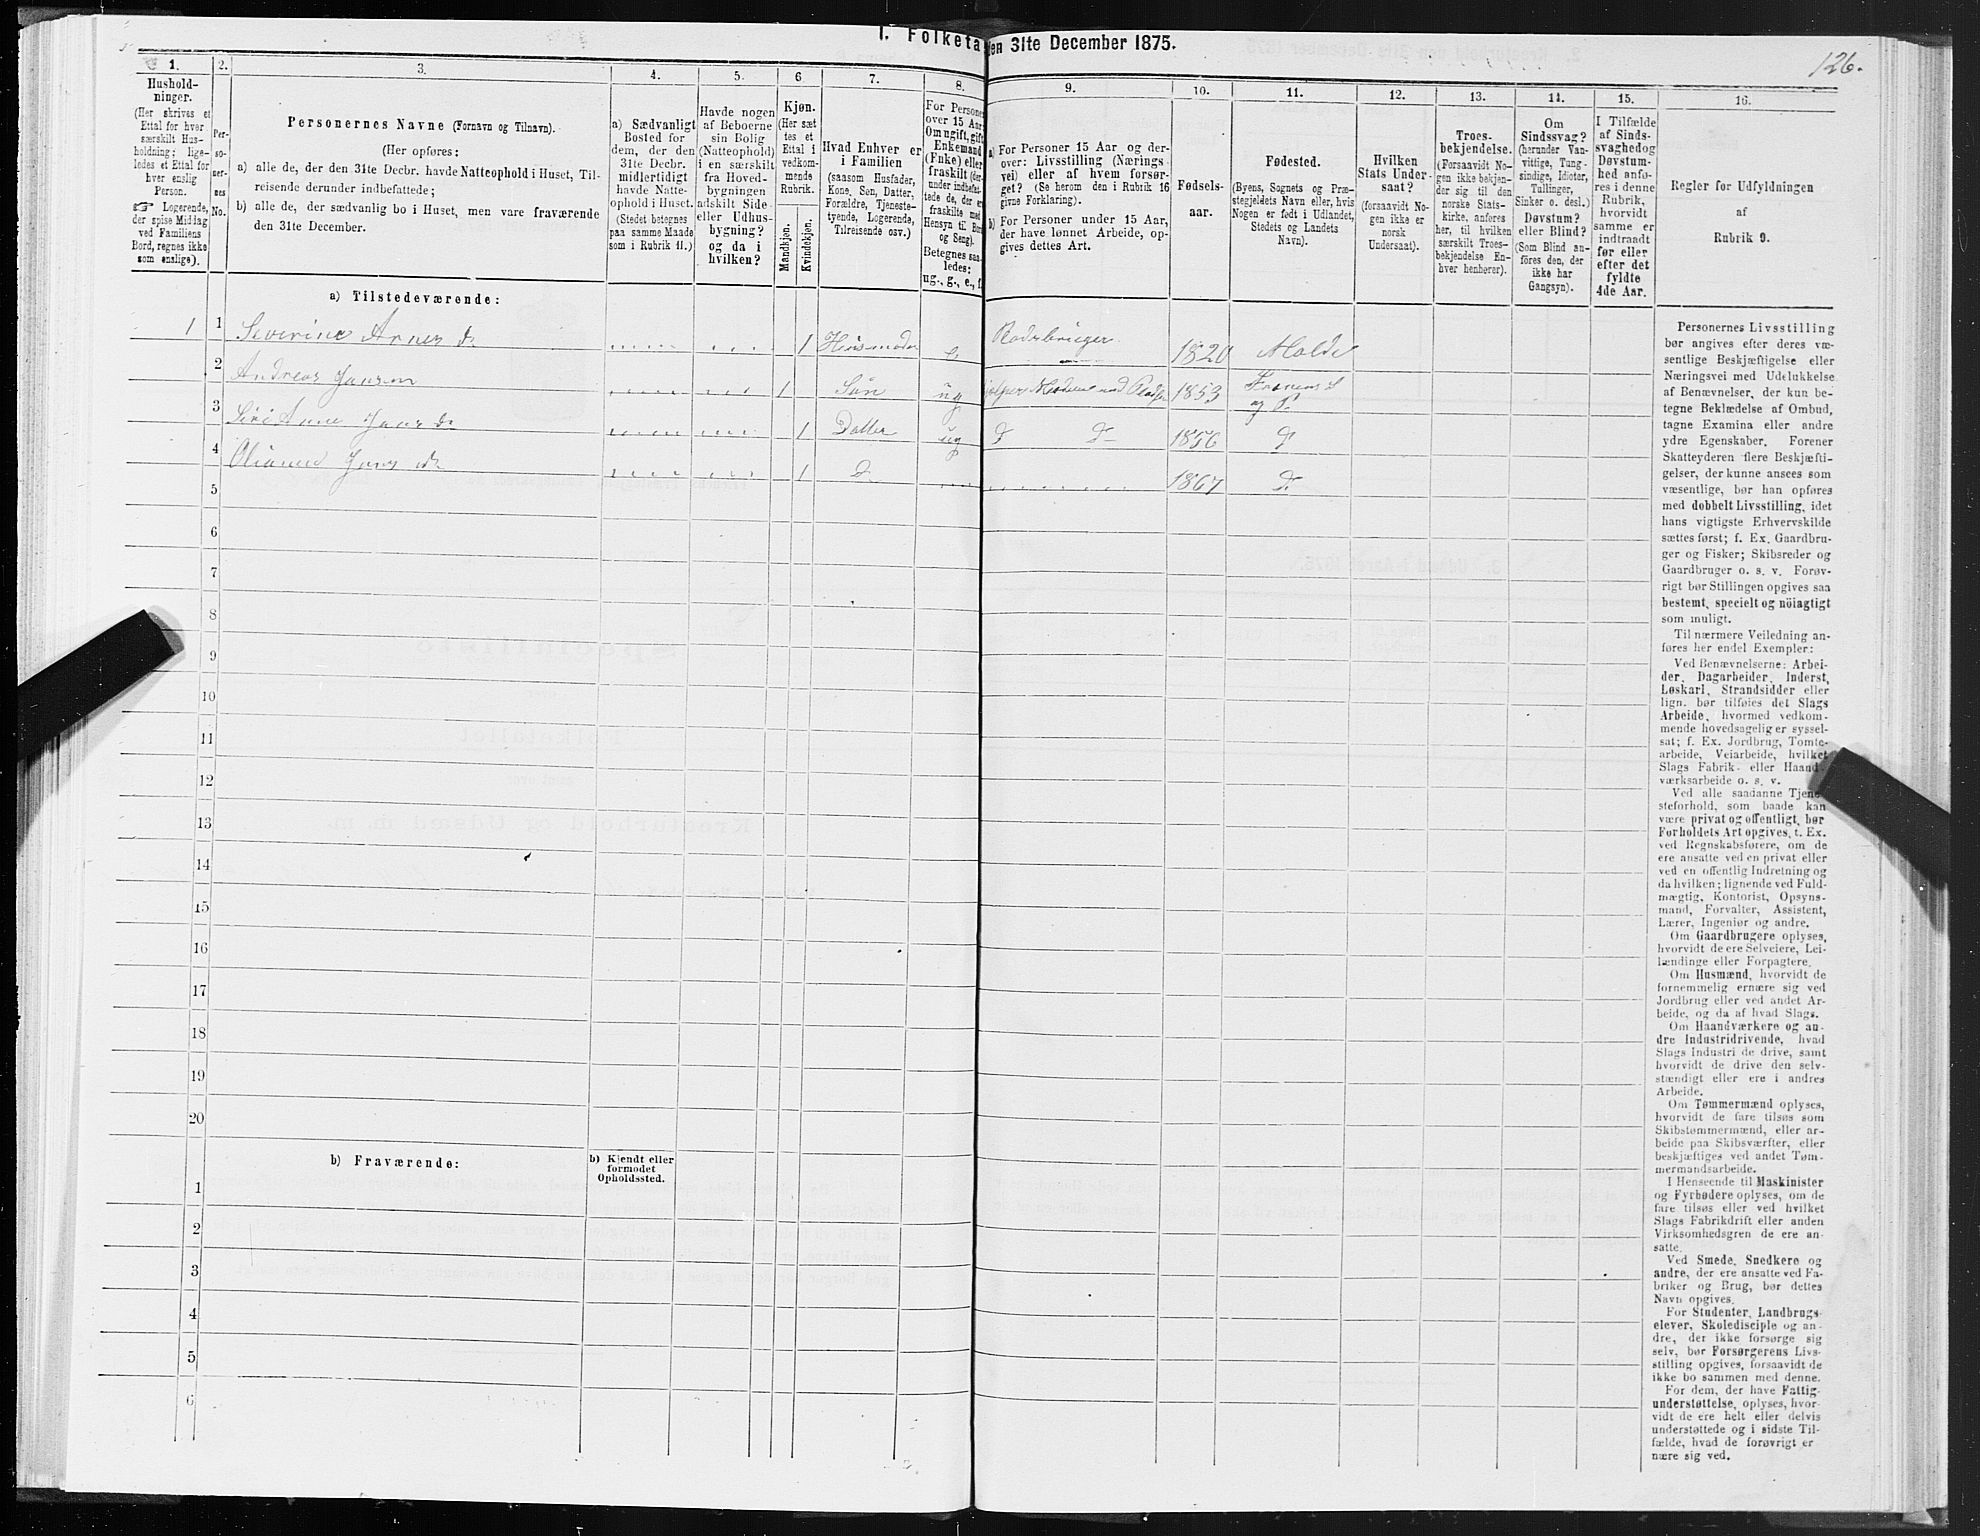 1. Folketa
den 31te December 1875.
126.
1.
2.
3.
4.
5.
6
7.
8.
9.
10.
11.
12.
13.
14.
15.
16.
Hushold-
ninger.
(Her skrives et
Ettal for hver
særskilt Hus-
holdning; lige-
ledes et Ettal for
hver enslig
Person.
☞ Logerende,
der spise Middag
ved Familiens
Bord, regnes ikke
som enslige).
Per-
so-
ner-
nes
No.
Personernes Navne (Fornavn og Tilnavn).
(Her opføres:
a) alle de, der den 31te Decbr. havde Natteophold i Huset, Til-
reisende derunder indbefattede;
b) alle de, der sædvanlig bo i Huset, men vare fraværende
den 31te December.
a) Sædvanligt
Bosted for
dem, der den
31te Decbr.
midlertidigt
havde Natte-
ophold i Huset.
(Stedet betegnes
paa samme Maade
som i Rubrik 11.)
Havde nogen
af Beboerne
sin Bolig
(Natteophold)
i en særskilt
fra Hoved-
bygningen
adskilt Side-
eller Udhus-
bygning?
og da i
hvilken?
Kjøn.
(Her sæt
tes et
Ettal i
vedkom-
mende
Rubrik.
Mandkjøn.
Kvindekjøn.
Hvad Enhver er
i Familien
(saasom Husfader,
Kone, Søn, Datter,
Forældre, Tjeneste-
tyende, Logerende,
Tilreisende osv.)
For Persone
over 15 Aar
Om ugift, gift
Enkemand
(Enke) eller
fraskilt (der-
under indbefat-
tede de, der er
fraskilte med
Hensyn til Bo
og Seng).
Betegnes saa-
ledes:
ug., g., e., f.
a) For Personer 15 Aar og der-
over: Livsstilling (Nærings
vei) eller af hvem forsør-
get? (Se herom den i Rubrik 16
givne Forklaring).
b) For Personer under 15 Aar,
der have lønnet Arbeide, op-
gives dettes Art.
Fødsels-
aar.
Fødested.
(Byens, Sognets og Præ-
stegjeldets Navn eller, hvis
Nogen er født i Udlandet,
Stedets og Landets
Navn).
Hvilken
Stats Under-
saat?
(forsaavidt No-
gen ikke er
norsk
Undersaat).
Troes-
bekjendelse.
(Forsaavidt No-
gen ikke bekjen-
der sig til den
norske Stats-
kirke, anføres
her, til hvilken
særskilt Troes-
bekjendelse En-
hver henhører).
Om
Sindssvag?
(herunder Van-
vittige, Tung-
sindige, Idioter,
Tullinger,
Sinker o. desl.)
Døvstum?
eller Blind?
(Som Blind an-
føres den, der
ikke har
Gangsyn).
I Tilfælde
af Sinds-
svaghed og
Døvstum-
hed anfø-
res i denne
Rubrik,
hvorvidt
samme er
indtraadt
før eller
efter det
fyldte
4de Aar.
Regler for Udfyldningen
af
Rubrik 9.
a) Tilstedeværende:
1 1 Severine Arnes dr 1 Husmoder e 1820 Molde
2 Andreas Jansen 1 Søn ug 1853
og P.
3 Jans dr 1 Datter ug D D 1856 D
4 Jans dr 1 D 1867 D
5
6
7
8
9
10
11
12
13
14
15
16
17
18
19
20
b) Fraværende:
b) Kjendt eller
formodet
Opholdssted.
1
2
3
4
5
6
Personernes Livsstilling
bør angives efter deres væ-
sentlige Beskjæftigelse eller
Næringsvei med Udelukkelse
af Benævnelser, der kun be-
tegne Beklædelse af Ombud,
tagne Examina eller andre
ydre Egenskaber. Forener
Skatteyderen flere Beskjæfti-
gelser, der kunne ansees som
væsentlige, bør han opføres
med dobbelt Livsstilling, idet
hans vigtigste Erhvervskilde
sættes først; f. Ex. Gaardbru-
ger og Fisker; Skibsreder og
Gaardbruger o. s. v. Forøv-
rigt bør Stillingen opgives saa
bestemt, specielt og nöiagtigt
som muligt.
Til nærmere Veiledning an-
føres her endel Exempler:
Ved Benævnelserne: Arbei-
der, Dagarbeider, Inderst,
Løskarl, Strandsidder eller
lign. bør tilføies det Slags
Arbeide, hvormed vedkom-
mende hovedsagelig er syssel-
sat; f. Ex. Jordbrug, Tomte-
arbeide, Veiarbeide, hvilket
Slags Fabrik- eller Haand-
værksarbeide o. s. v.
Ved alle saadanne Tjene-
steforhold, som baade kan
være privat og offentligt, bør
Forholdets Art opgives, t. Ex.
ved Regnskabsførere, om de
ere ansatte ved en privat eller
ved en offentlig Indretning og
da hvilken; lignende ved Fuld-
mægtig, Kontorist, Opsyns-
mand, Forvalter, Assistent,
Lærer, Ingeniør og andre.
Om Gaardbrugere oplyses,
hvorvidt de ere Selveiere, Lei-
lændinge eller Forpagtere.
Om Husmænd, hvorvidt de
fornemmelig ernære sig ved
Jordbrug eller ved andet Ar-
beide, og da af hvad Slags.
Om Haandværkere og an-
dre Industridrivende, hvad
Slags Industri de drive, samt
hvorvidt de drive den selv-
stændigt eller ere i andres
Arbeide.
Om Tømmermænd oplyses,
hvorvidt de fare tilsøs som
Skibstømmermænd, eller ar-
beide paa Skibsværfter, eller
beskjæftiges ved andet Tøm-
mermandsarbeide.
I Henseende til Maskinister
og Fyrbødere oplyses, om de
fare tilsøs eller ved hvilket
Slags Fabrikdrift eller anden
Virksomhedsgren de ere an-
satte.
Ved Smede, Snedkere og
andre, der ere ansatte ved Fa-
briker og Brug, bør dettes
Navn opgives.
For Studenter, Landbrugs-
elever, Skoledisciple og an-
dre, der ikke forsørge sig
selv, bør Forsørgerens Livs-
stilling opgives, forsaavidt de
ikke bo sammen med denne.
For dem, der have Fattig-
understøttelse, oplyses, hvor-
vidt de ere helt eller delvis
understøttede og i sidste Til-
fælde, hvad de forøvrigt er
nære sig ved.